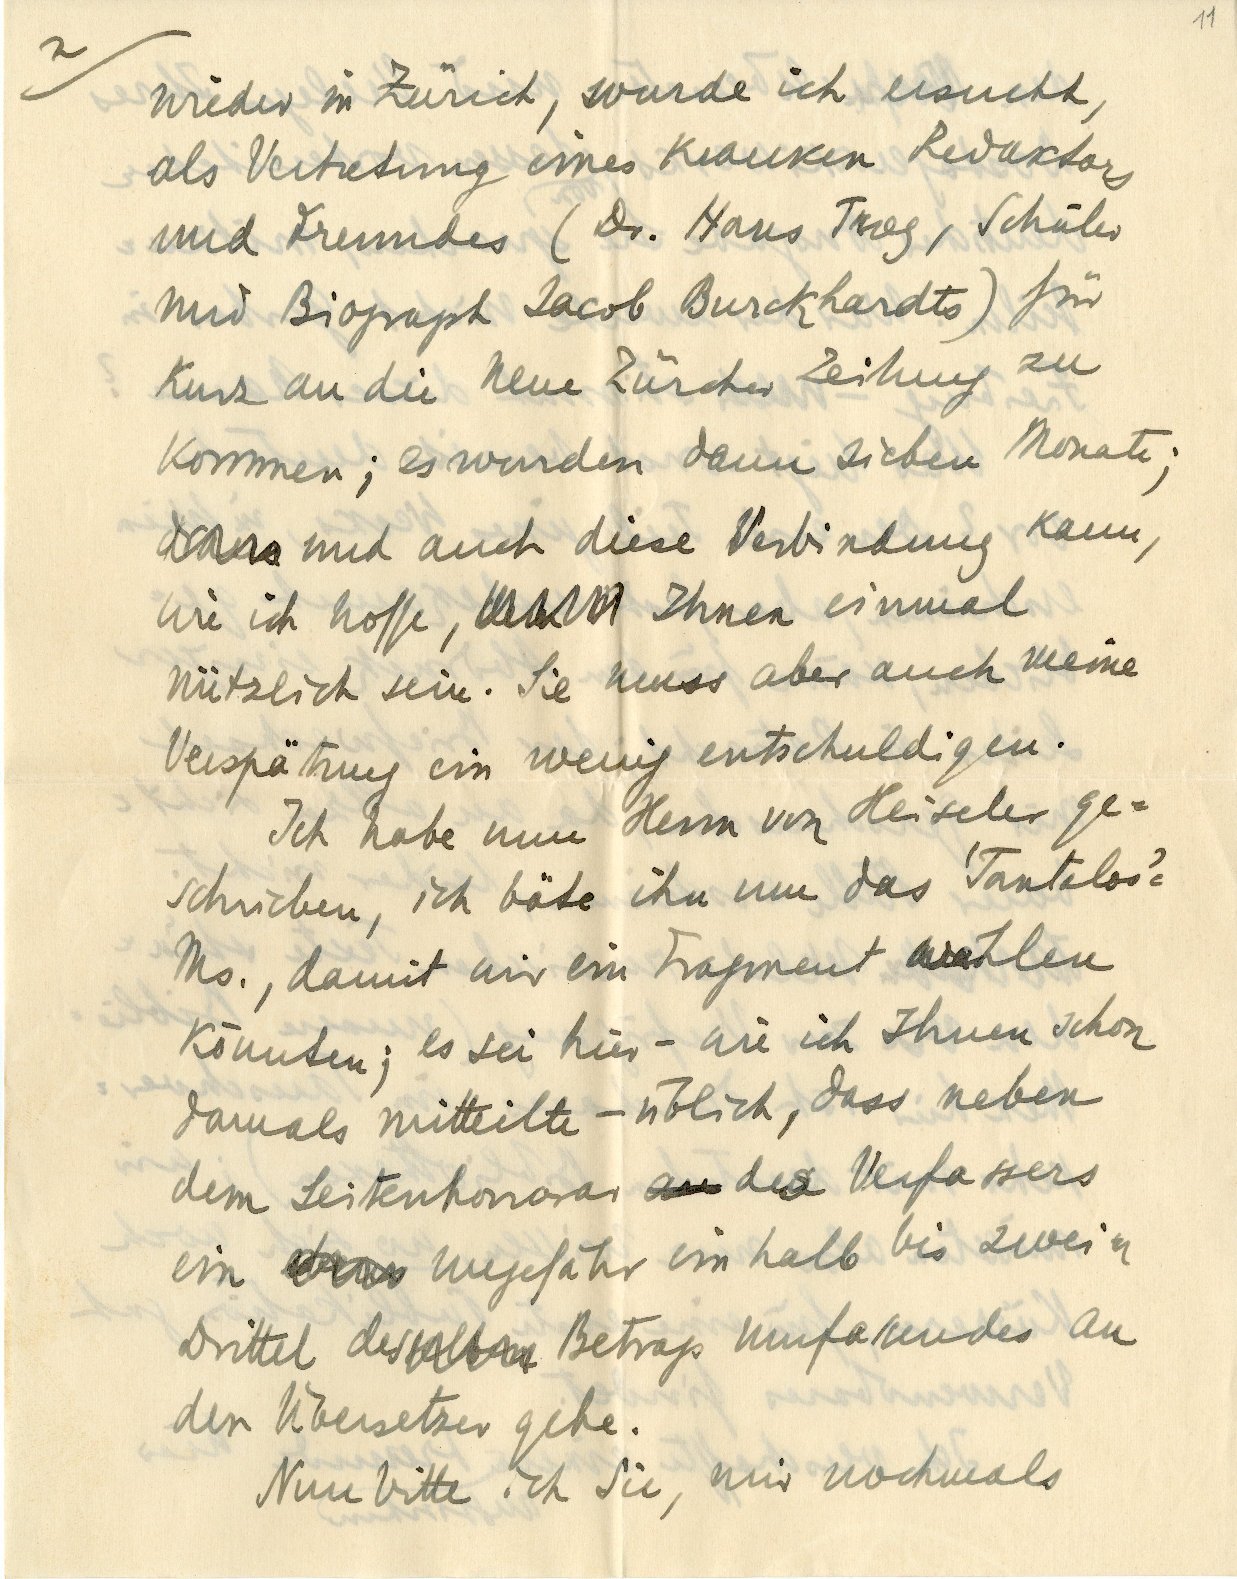 11
2/
wieder in Zürich, wurde ich ersucht,
als Vertretung eines kranken Redaktors
und Freundes (Dr. Hans Trog, Schüler
und Biograph Jacob Burckhardts) für
kurz an die Neue Zürcher Zeitung zu
kommen; es wurden dann sieben Monate;
und auch diese Verbindung kann,
wie ich hoffe, Ihnen einmal
nützlich sein. Sie muss aber auch meine
Verspätung ein wenig entschuldigen.
Ich habe nun Herrn von Heiseler ge-
schrieben, ich bäte ihn um das 'Tantalos'-
Ms., damit wir ein Fragment wählen
könnten; es sei hier - wie ich Ihnen schon
damals mitteilte - üblich, dass neben
dem Seitenhonorar des Verfassers
ein ungefähr ein halb bis zwei
Drittel des Betrags umfassendes an
den Übersetzer gehe.
Nun bitte ich Sie, mir nochmals